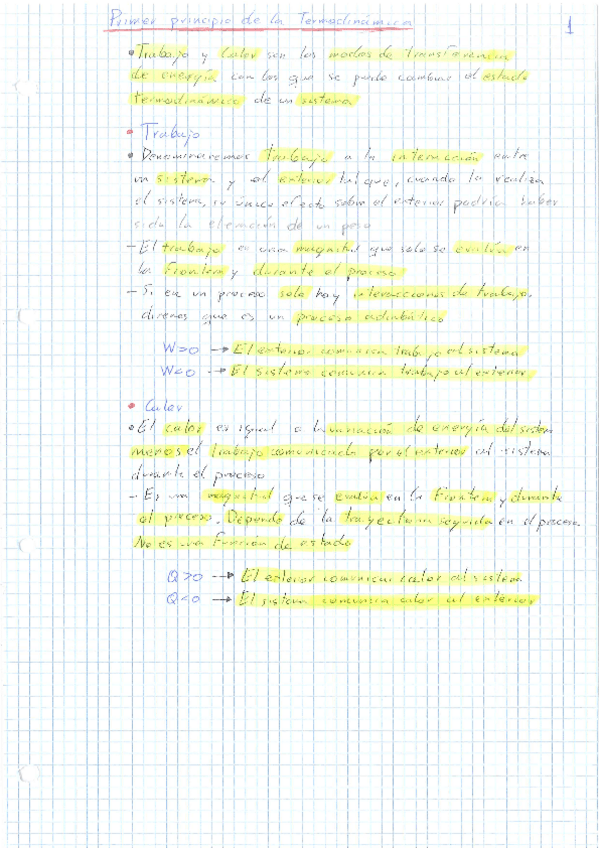 Primer principio de la Termodinámica
1
• Trabajo y Calor son los modos de transferencia
de energía con los que se puede cambiar el estado
termodinámico de un sistema
• Trabajo
• Denominaremos trabajo a la interacción entre
un sistema y el exterior tal que, cuando la realiza
el sistema, su único efecto sobre el exterior podría haber
sido la elevación de un peso
- El trabajo es una magnitud que solo se evalúa en
la Frontera y durante el proceso
- Si en un proceso solo hay interacciones de trabajo,
diremos que es un proceso adiabático
W>0 → El exterior comunica trabajo al sistema
W<0 → El sistema comunica trabajo al exterior
• Calor
• El calor es igual a la variación de energía del sistema
menos el trabajo comunicado por el exterior al sistema
durante el proceso
- Es una magnitud que se evalúa en la Frontera y durante
el proceso. Depende de la trayectoria seguida en el proceso
No es una Función de estado
Q>0 → El exterior comunica calor al sistema
Q<0 → El sistema comunica calor al exterior